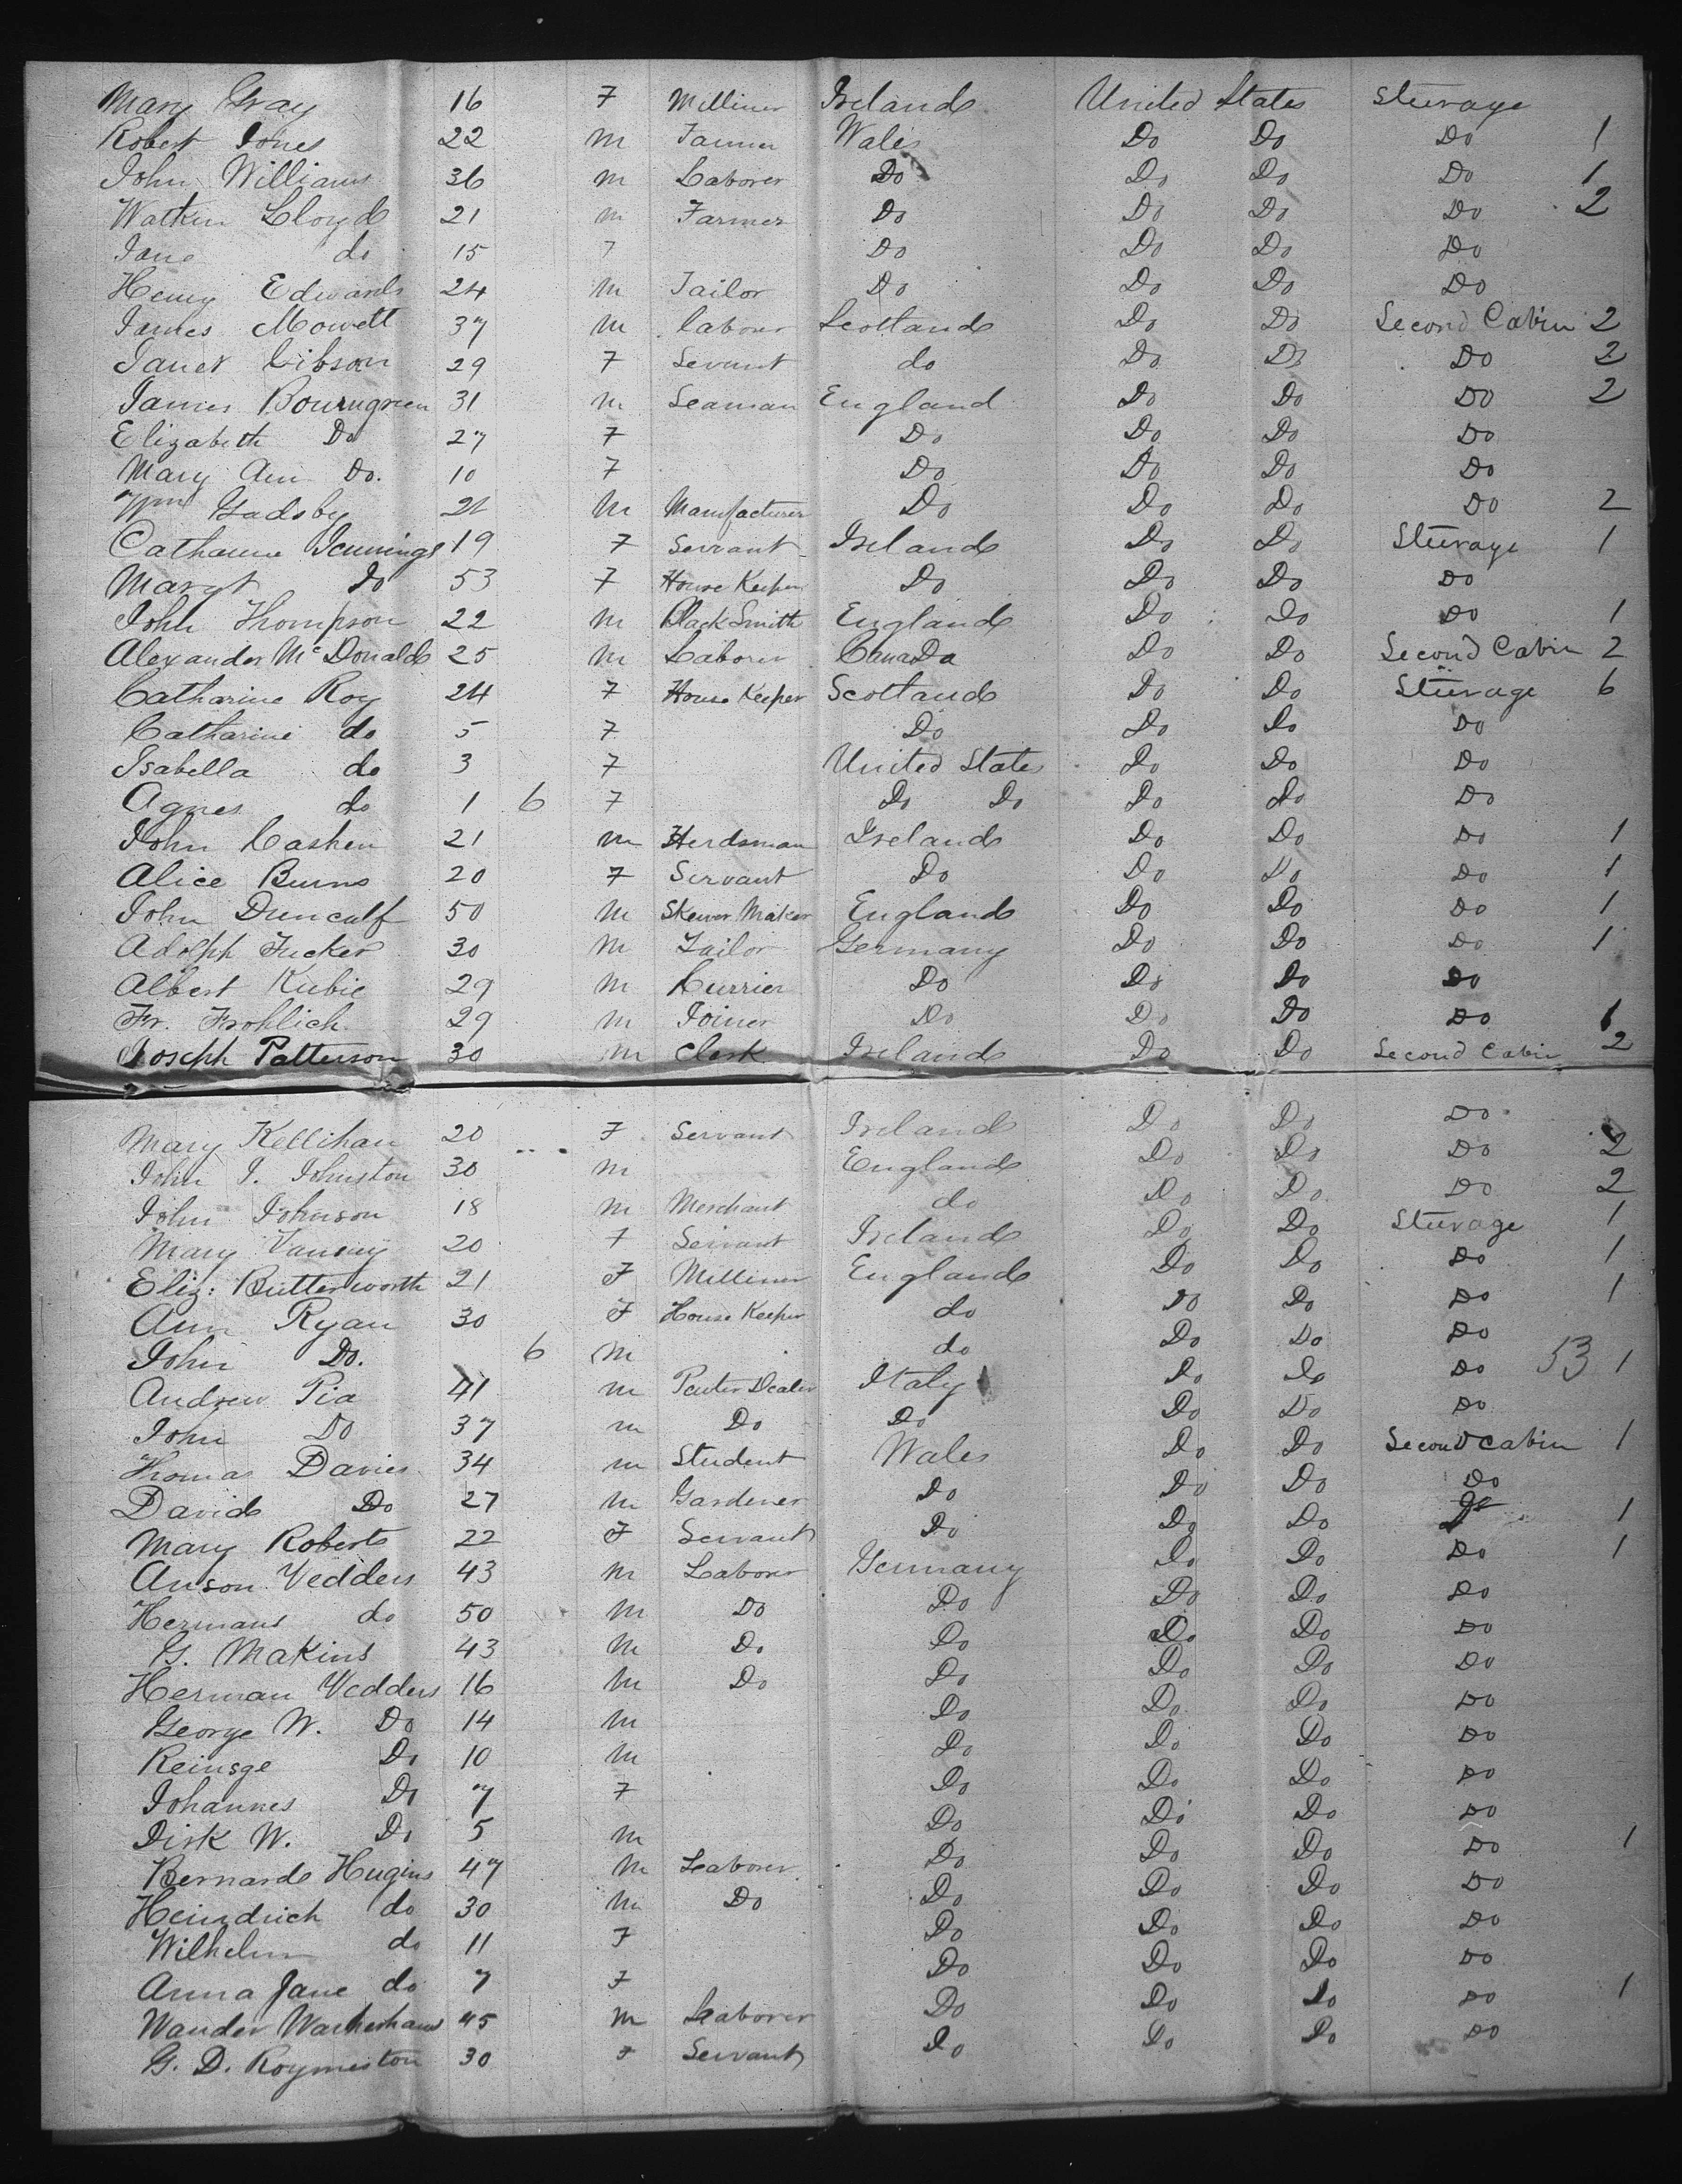 Mary Gray 16 F Milliner Ireland United States Steerage
Robert Jones 22 M Farmer Wales Do Do Do 1
John Williams 36 M Laborer Do Do Do Do 1
Watkin Lloyd 21 M Farmer Do Do Do Do 2
Jane do 15 F Do Do Do Do
Henry Edwards 24 M Tailor Do Do Do Do
James Mowett 37 M Labourer Scotland Do Do Second Cabin 2
Janet Gibson 29 F Servant do Do Do Do 2
James Bourngreen 31 M Seaman England Do Do Do 2
Elizabeth Do 27 F Do Do Do Do
Mary Ann Do. 10 F Do Do Do Do
Wm Gadsby 21 M Manufacturer Do Do Do Do 2
Catharine Jennings 19 F Servant Ireland Do Do Steerage 1
Margt Do 53 F House Keeper Do Do Do Do
John Thompson 22 M Black Smith England Do Do Do 1
Alexander McDonald 25 M Laborer Canada Do Do Second Cabin 2
Catharine Roy 24 F House Keeper Scotland Do Do Steerage 6
Catharine do 5 F Do Do Do Do
Isabella do 3 F United States Do Do Do
Agnes do 1 6 F Do Do Do Do Do
John Cashen 21 M Herdsman Ireland Do Do Do 1
Alice Burns 20 F Servant Do Do Do Do 1
John Duncalf 50 M Skewer Maker England Do Do Do 1
Adolph Fucker 30 M Tailor Germany Do Do Do 1
Albert Kubie 29 M Currier Do Do Do Do
Fr. Frohlich 29 M Joiner Do Do Do Do 1
Joseph Patterson 30 M Clerk Ireland Do Do Second Cabin 2
Mary Kellihan 20 F Servant Ireland Do Do Do
John J. Johnston 30 M England Do Do Do 2
John Johnson 18 M Merchant do Do Do Do 2
Mary 20 F Servant Ireland Do Do Steerage 1
Eliz: Butterworth 21 F Milliner England Do Do Do 1
Ann Ryan 30 F House Keeper do Do Do Do 1
John Do. 6 M do Do Do Do
Andrew Pia 41 M Pewter Dealer Italy Do Do Do 53 1
John Do 37 M Do Do Do Do Do
Thomas Davies 34 M Student Wales Do Do Second Cabin 1
David Do 27 M Gardener Do Do Do Do
Mary Roberts 22 F Servant Do Do Do Do 1
Anson Vedders 43 M Laborer Germany Do Do Do 1
Hermans do 50 M Do Do Do Do Do
G. Makins 43 M Do Do Do Do Do
Herman Vedders 16 M Do Do Do Do Do
George W. Do 14 M Do Do Do Do
Reinsge Do 10 M Do Do Do Do
Johannes Do 7 F Do Do Do Do
Dirk W. Do 5 M Do Do Do Do
Bernard Hugins 47 M Laborer Do Do Do Do 1
Heindrich do 30 M Do Do Do Do Do
Wilhelm do 11 F Do Do Do Do
Anna Jane do 7 F Do Do Do Do
Wander 45 M Laborer Do Do Do Do 1
G. D. Roymeston 30 F Servant Do Do Do Do